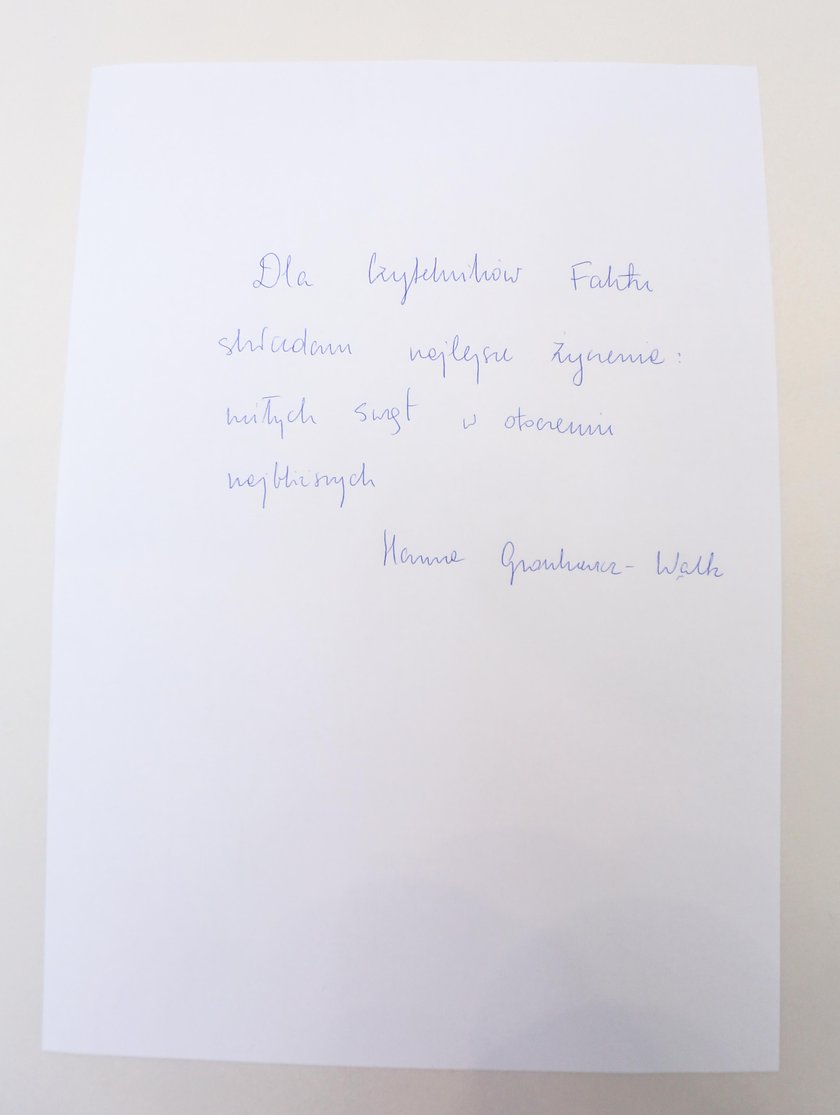 Dla Czytelników Faktu
składam najlepsze życzenia:
miłych świąt w otoczeniu
najbliższych
Hanna Gronkiewicz-Waltz